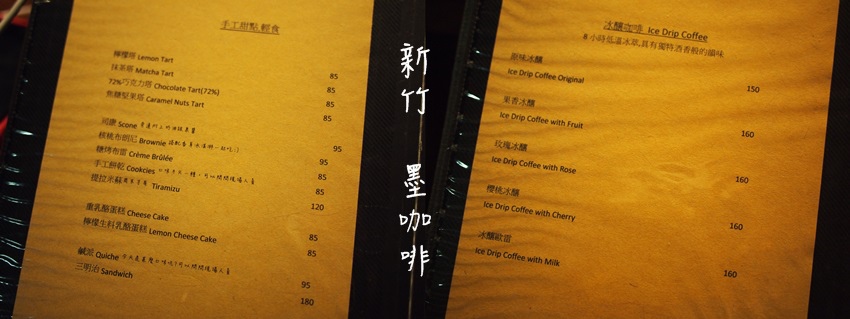 手工甜點.輕食
檸檬塔 Lemon Tart 85
抹茶塔 Matcha Tart 85
72%巧克力塔 Chocolate Tart(72%) 85
焦糖堅果塔 Caramel Nuts Tart 85
司康 Scone 95
核桃布朗尼 Brownie 95
糖烤布蕾 Crème Brûlée 85
手工餅乾 Cookcies 85
提拉米蘇 Tiramizu 120
重乳酪蛋糕 Cheese Cake 85
檸檬生料乳酪蛋糕 Lemon Cheese Cake 85
鹹派 Quiche 95
三明治 Sandwich 180
新竹 墨咖啡
冰釀咖啡 Ice Drip Coffee
8 小時低溫冰萃,具有獨特酒香般的韻味
原味冰釀
Ice Drip Coffee Original 150
果香冰釀
Ice Drip Coffee with Fruit 160
玫瑰冰釀
Ice Drip Coffee with Rose 160
櫻桃冰釀
Ice Drip Coffee with Cherry 160
冰釀歐蕾
Ice Drip Coffee with Milk 160